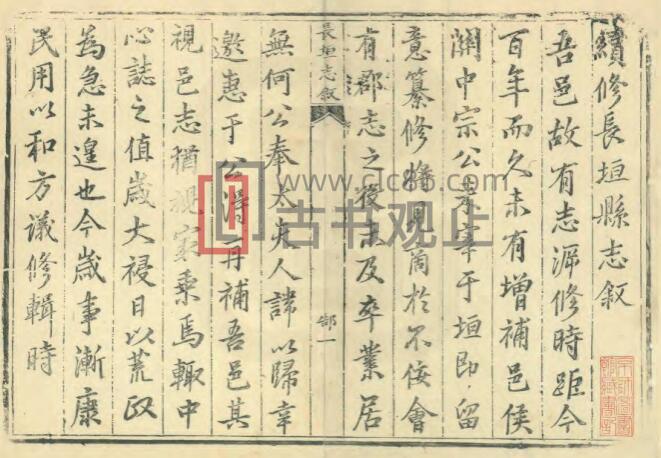 續修長垣縣志敘
吾邑故有志溯修時距今
百年而久未有增補邑侯
關中宗公來宰于垣即留
意纂修將見簡於不佞會
有郡志之役未及卒業居
長垣志敘
郜一
無何公奉太夫人諱以歸幸
邀惠于公得再補吾邑其
視邑志猶視家乘焉輒中
心誌之值歲大祲日以荒政
為急未遑也今歲事漸康
民用以和方議修輯時
www.cjc86.com
古书观止